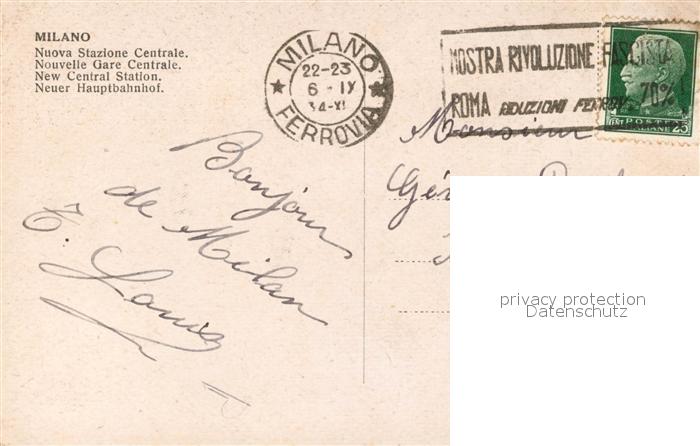 MILANO
Nuova Stazione Centrale.
Nouvelle Gare Centrale.
New Central Station.
Neuer Hauptbahnhof.
MILANO
22-23
6·IX
34-XI
FERROVIA
MOSTRA RIVOLUZIONE FASCISTA
ROMA RIDUZIONI FERROV 70%
POSTE
ITALIANE 25
Monsieur
Bonjour
de Milan
Louis
privacy protection
Datenschutz